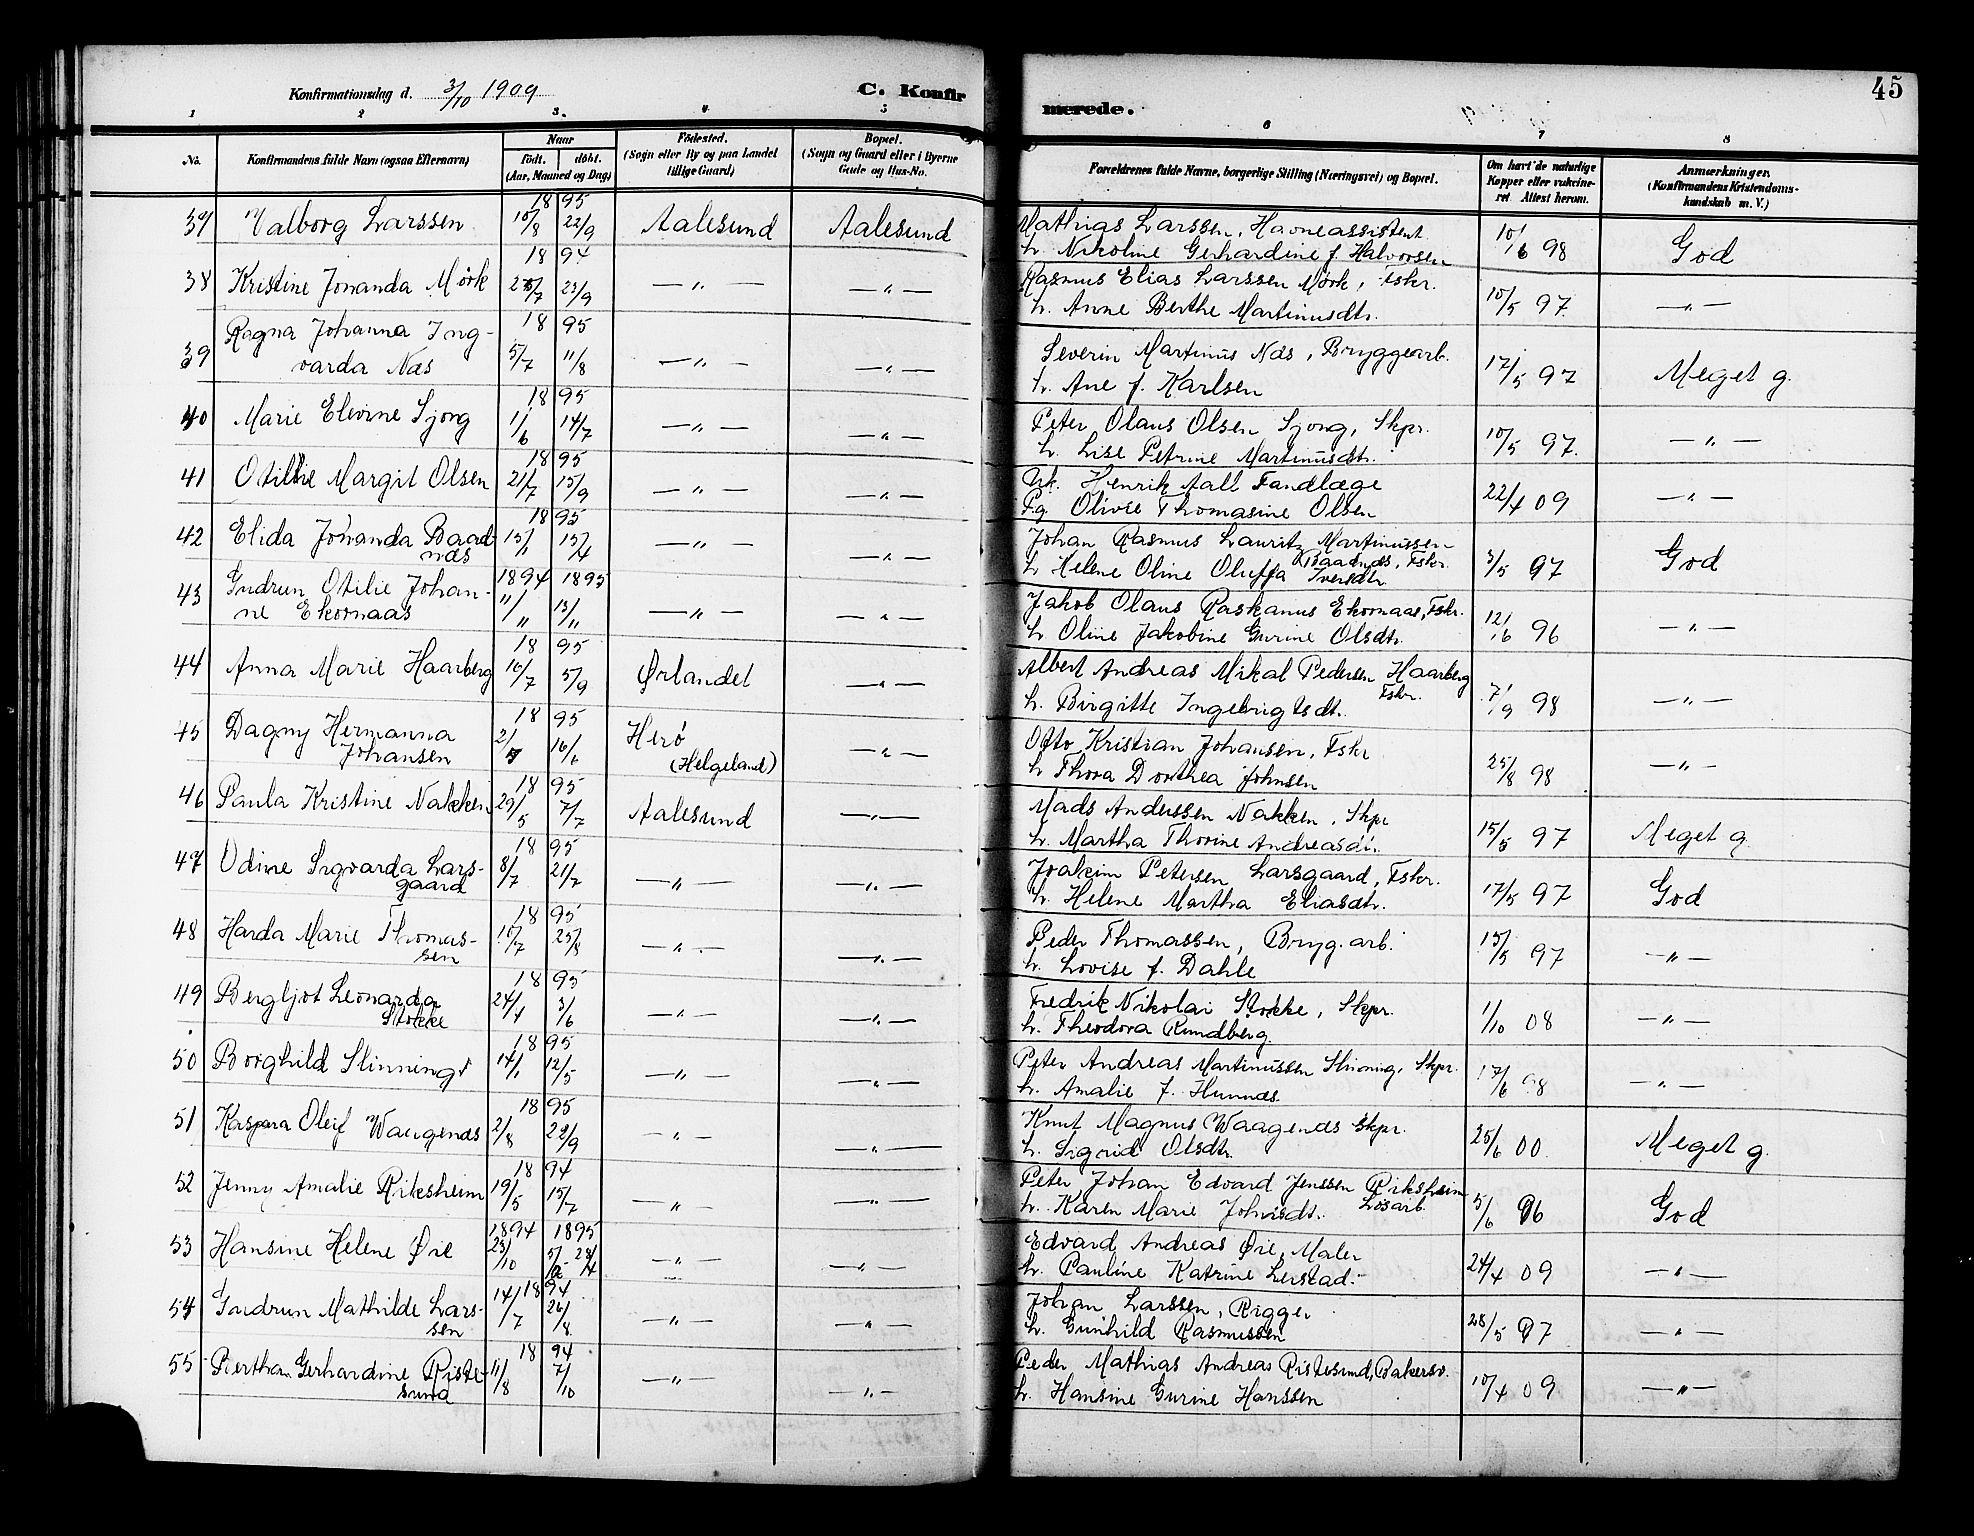 45
Konfirmationsdag d. 3/10 1909
C. Konfirmerede.
1 2 3. 4 5 6 7 8
No.
Konfirmandens fulde Navn (ogsaa Efternavn)
Naar
födt. döbt.
(Aar, Maaned og Dag)
Födested.
(Sogn eller By og paa Landet
tillige Gaard)
Bopæl.
(Sogn og Gaard eller i Byerne
Gade og Hus-No.
Forældrenes fulde Navne, borgerlige Stilling (Næringsvei) og Bopæl.
Om havt de naturlige
Kopper eller vakcine-
ret Attest herom.
Anmærkninger.
(Konfirmandens Kristendoms-
kundskab m. V.)
37 Valborg Larssen 1895 10/8 22/9 Aalesund Aalesund Mathias Larssen, Havneassistent
h. Nikoline Gerhardine f. Halvorsen 10/6 98 God
38 Kristine Johanda Mörk 1894 23/9 — " — — " — Rasmus Elias Larssen Mörk, Fskr.
h. Anne Berthe Martinusdtr. 10/5 97 — " —
39 Ragna Johanna Ing-
varda Næs 1895 5/7 11/8 — " — — " — Severin Martinus Næs, Bryggearb.
h. Ane f. Karlsen 17/5 97 Meget g.
40 Marie Elevine Sjong 1895 1/6 14/7 — " — — " — Peter Olaus Olsen Sjong, Skpr.
h. Lise Petrine Martinusdtr. 10/5 97. — " —
41 Otillie Margit Olsen 1895 21/7 15/9 — " — — " — Uk. Henrik Aall Tandlæge
Pg Olivie Thomasine Olsen 22/4 09 — " —
42 Elida Johanda Baad-
næs 1895 15/1 15/4 — " — — " — Johan Rasmus Lauritz Martinussen
Baadnæs, Fskr.
h. Helene Oline Oluffa Iversdtr. 3/5 97 God
43 Gudrun Otilie Johan-
ne Ekornaas 1894 1895 11/11 13/11 — " — — " — Jakob Olaus Raskanus Ekornaas, Fskr.
h. Oline Jakobine Gurine Olsdtr. 12/6 96 — " —
44 Anna Marie Haarberg 1895 10/7 5/9 Ørlandet — " — Albert Andreas Mikal Pedersen Haarberg
Fskr.
h. Birgitte Ingebrigtsdtr. 7/9 98 — " —
45 Dagny Hermanna
Johansen 1895 16/6 Herö
(Helgeland) — " — Otto Kristian Johansen, Fskr
h. Thora Dorthea Johnsen 25/8 98 — " —
46 Paula Kristine Nakken 1895 29/5 7/7 Aalesund — " — Mads Anderssen Nakken, Skpr
h. Martha Thorine Andreasdtr. 15/5 97 Meget g.
47 Odine Sigvarda Lars-
gaard 1895 8/7 21/7 — " — — " — Joakim Petersen Larsgaard, Fskr.
h. Helene Martha Eliasdtr. 17/5 97 God
48 Harda Marie Thomas-
sen 1895 10/7 25/8 — " — — " — Peder Thomassen, Bryg. arb.
h. Lovise f. Dahle 15/5 97 — " —
49 Bergljot Leonarda
Stokke 1895 24/4 3/6 — " — — " — Fredrik Nikolai Stokke, Skpr.
h. Theodora Rundberg. 1/10 08 — " —
50 Borghild Slinning 1895 14/1 12/5 — " — — " — Peter Andreas Martinussen Slinning, Skpr.
h. Amalie f. Hunnæs. 17/6 98 — " —
51 Kaspara Oleif Waagenæs 1895 2/8 22/9 — " — — " — Knut Magnus Waagenæs Skpr.
h. Sigrid Olsdtr. 25/6 00. Meget g.
52 Jenny Amalie Riksheim 1894 19/5 15/7 — " — — " — Peter Johan Edvard Jenssen Riksheim
Løsarb.
h. Karen Marie Johnsdtr. 5/6 96 God
53 Hansine Helene Øie 1894 1895 23/10 — " — — " — Edvard Andreas Øie, Maler
h. Pauline Katrine Leistad. 24/4 09 — " —
54 Gudrun Mathilde Lars-
sen 1894 14/7 26/8 — " — — " — Johan Larssen, Rigger
h. Gunhild Rasmussen 28/5 97 — " —
55 Gerhardine Riste-
sund 1894 11/8 7/10 — " — — " — Peder Mathias Andreas Ristesund, Bakersv.
h. Hansine Gurine Hanssen 10/4 09 — " —